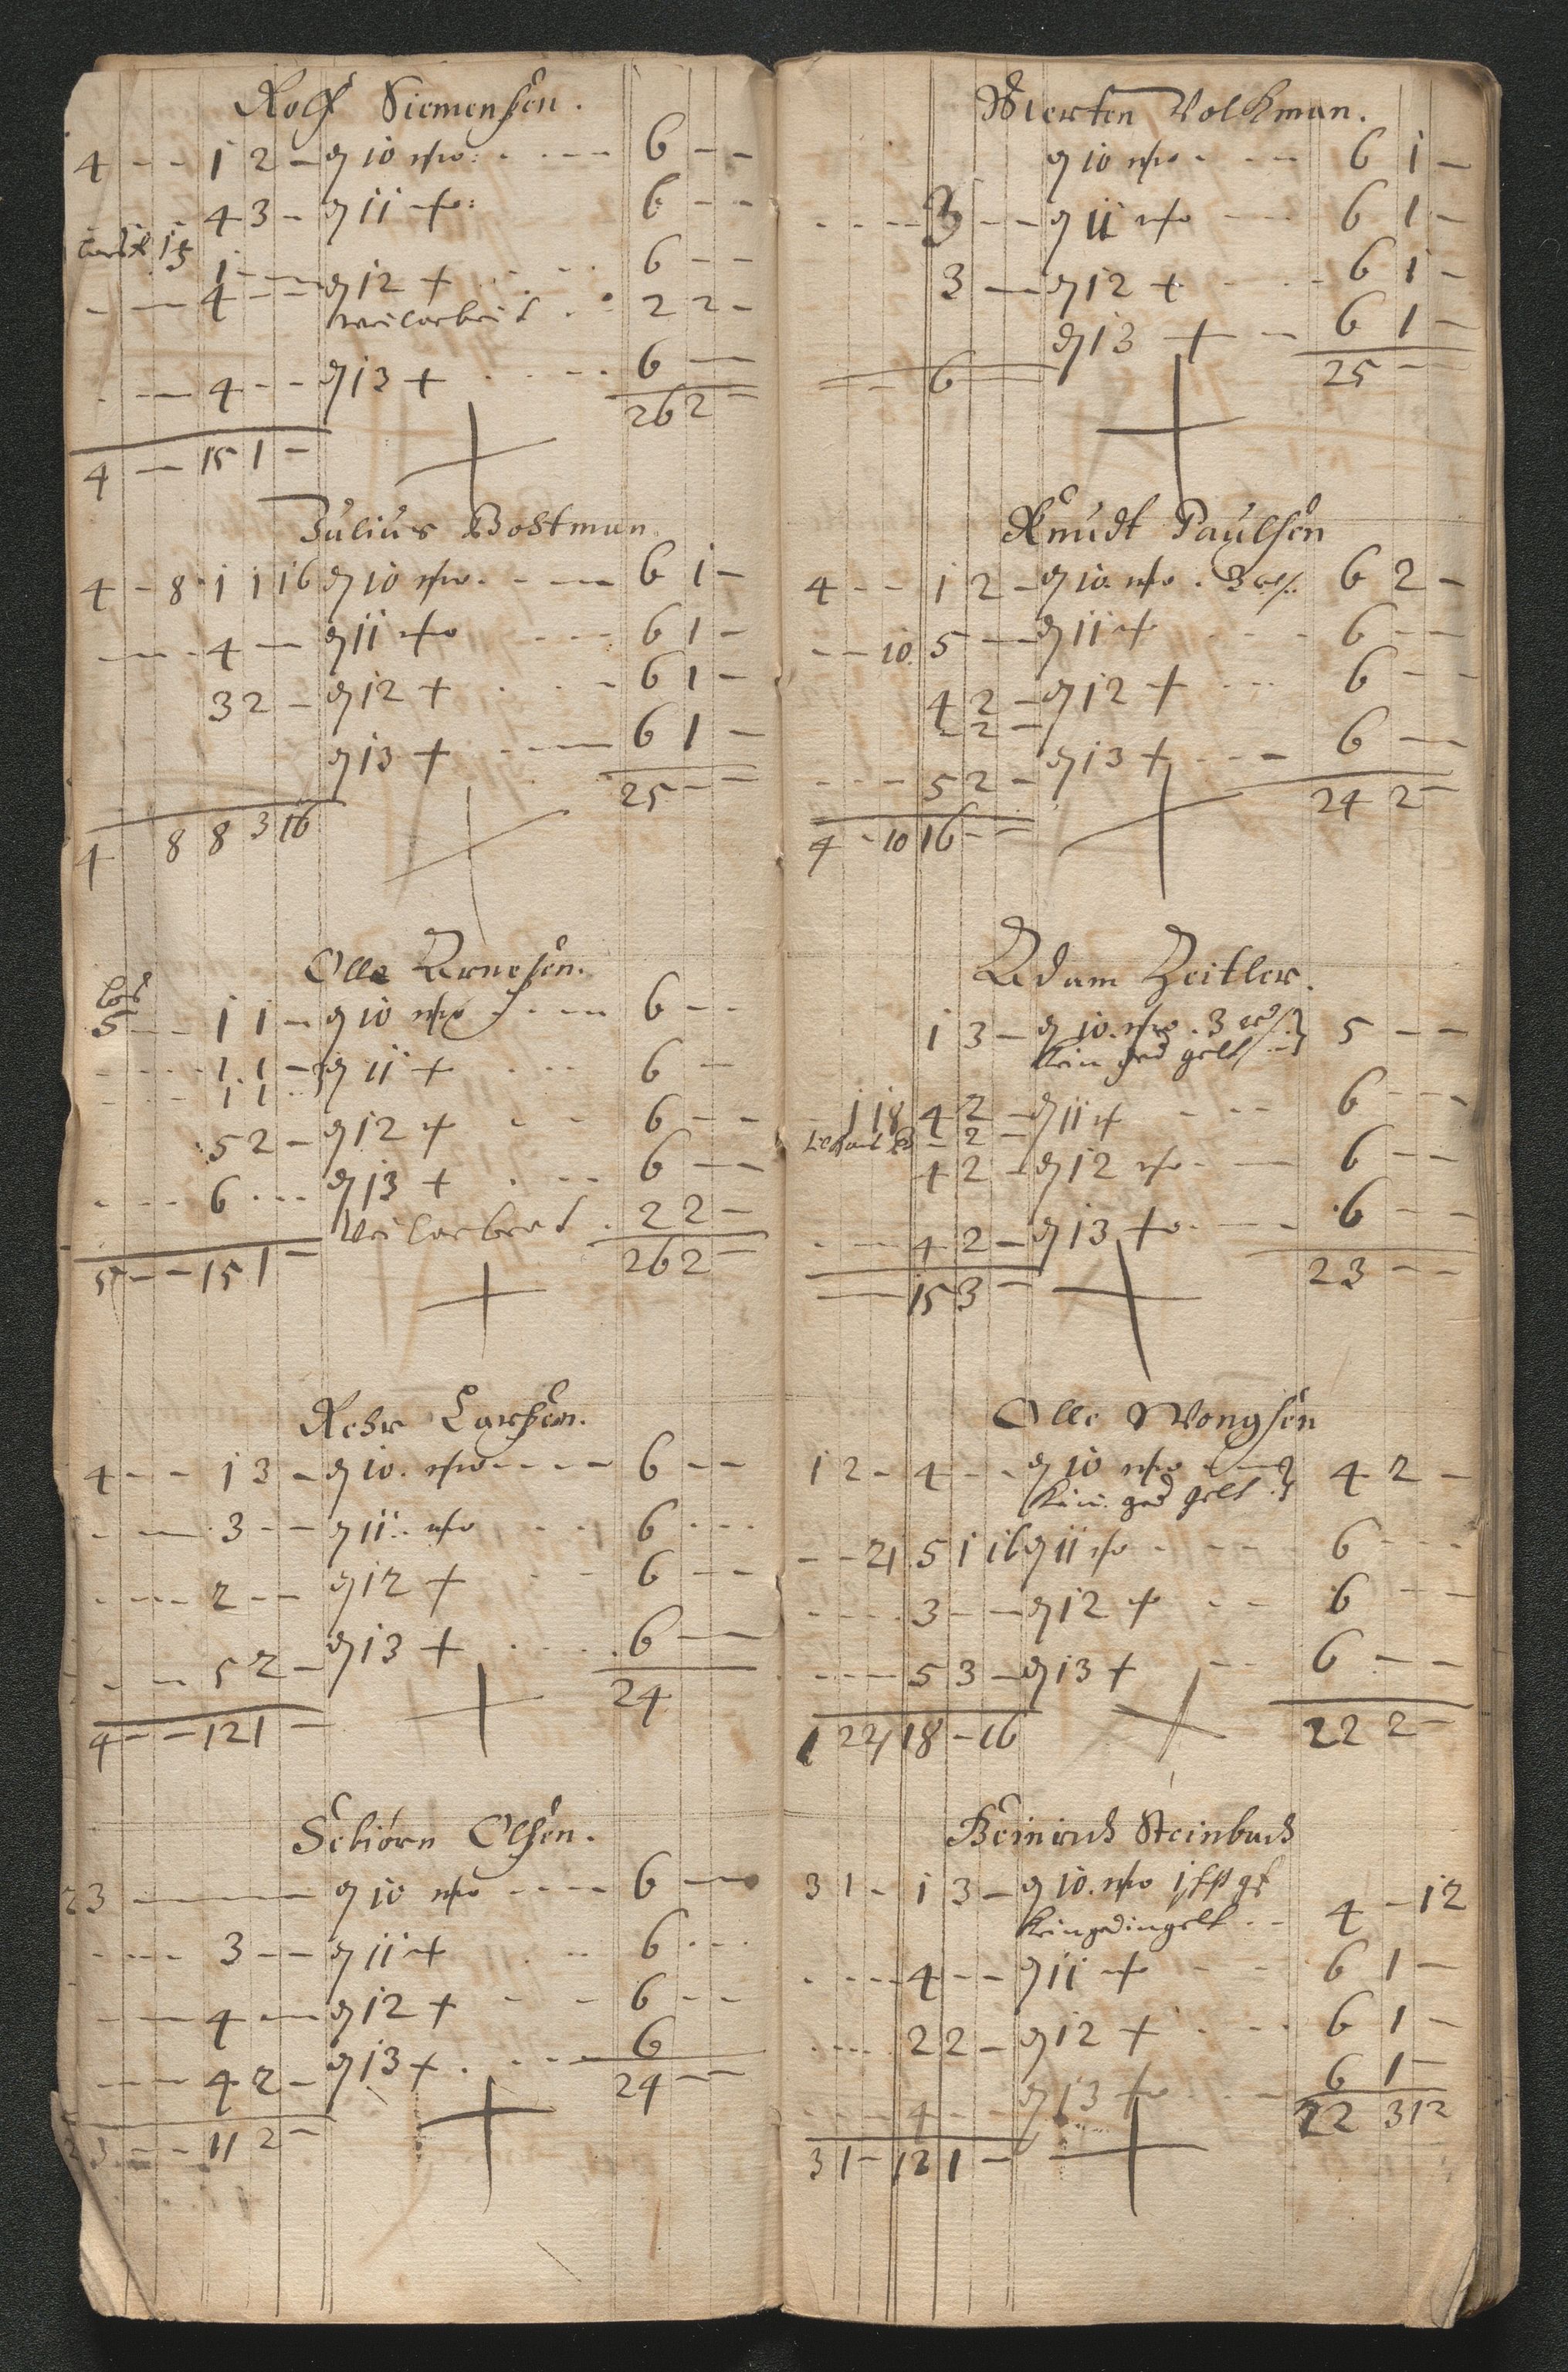 Rolf Siemensen.
4 - - 1 2 - 10 - - - 6 - -
4 3 - 11 6 - -
15
1 - - 12 + - - 6 - -
- - 4 - - weilarbeit . . 2 2 -
- - 4 - - 13 + - - - 6 -
26 2 -
4 - 15 1 -
Julius Bostman
4 - 8 - 1 1 16 10 - - - 6 1 -
- - - 4 - 11 - - - 6 1 -
3 2 - 12 + - - - 6 1 -
13 + - - - 6 1 -
25 - -
4 8 8 3 16
Olle Arnesen.
5 - - 1 1 - 10 - - - 6 - -
- - - 1 1 - 11 + - - - 6 -
- - - 1 1 -
5 2 - 12 + - - 6 - -
- - - 6 - - - 13 + - - - 6 - -
Weilarbeit . 2 2 -
26 2 -
5 - - 15 1 -
Rehr Larsen.
4 - - 1 3 - 10. - - - - 6 - -
- - - 3 - - 11 - - 6 - - -
- - - 2 - - 12 + - - 6 - -
13 + - - - 6 -
- - 5 2 -
24
4 - - 12 1 -
Sebiörn Olsen.
2 3 - 10 - - - - 6 -
- - - 3 - - 11 + - - 6 - - -
- - 4 - 12 + - - 6 - -
- - 4 2 - 13 + - - - 6
24 - -
2 3 - - 11 2 -
Merten Volkman.
10 - - - 6 1 -
- - - - 3 - - 11 - - 6 1 -
3 - 12 + - - - 6 1 -
13 + - 6 1 -
- - 6 25 -
Knudt Paulsen
4 - - 1 2 - 10. . 3 6 2 -
- - 10. 5 - 11 + - - - 6 - -
4 2 - 12 + - - - 6 - -
2 2 -
- - - 5 2 - 13 + - - - 6 -
24 2 -
4 - 10 16 - -
Adam Zeitler.
1 3 - 10. . 3 5 - -
Kein ged gelt
1 18 4 2 - 11 + - - - 6 - - -
- 2 -
4 2 - 12 - - 6 - -
- - - 4 2 - 13 + - - - 6 - -
23 - -
15 3 -
Olle Mongsen
1 2 - 4 - - 10 - - 4 2 -
Kein ged gelt
- - 21 5 1 16 11 - - - 6 - - -
- - - - 3 - - 12 + - - 6 - -
- - - - 5 3 - 13 + - - 6 - -
1 2 21 18 - 16 22 2 -
Heinrich Steinbuch
3 1 - 1 3 - 10. 4 - 12
Keingedingelt - -
- - - - 4 - - 11 + - - 6 1 -
- - - - 2 2 - 12 + - - - 6 1 -
- - - - 4 - - 13 + - - - 6 1 -
22 3 12
3 1 - 12 1 -